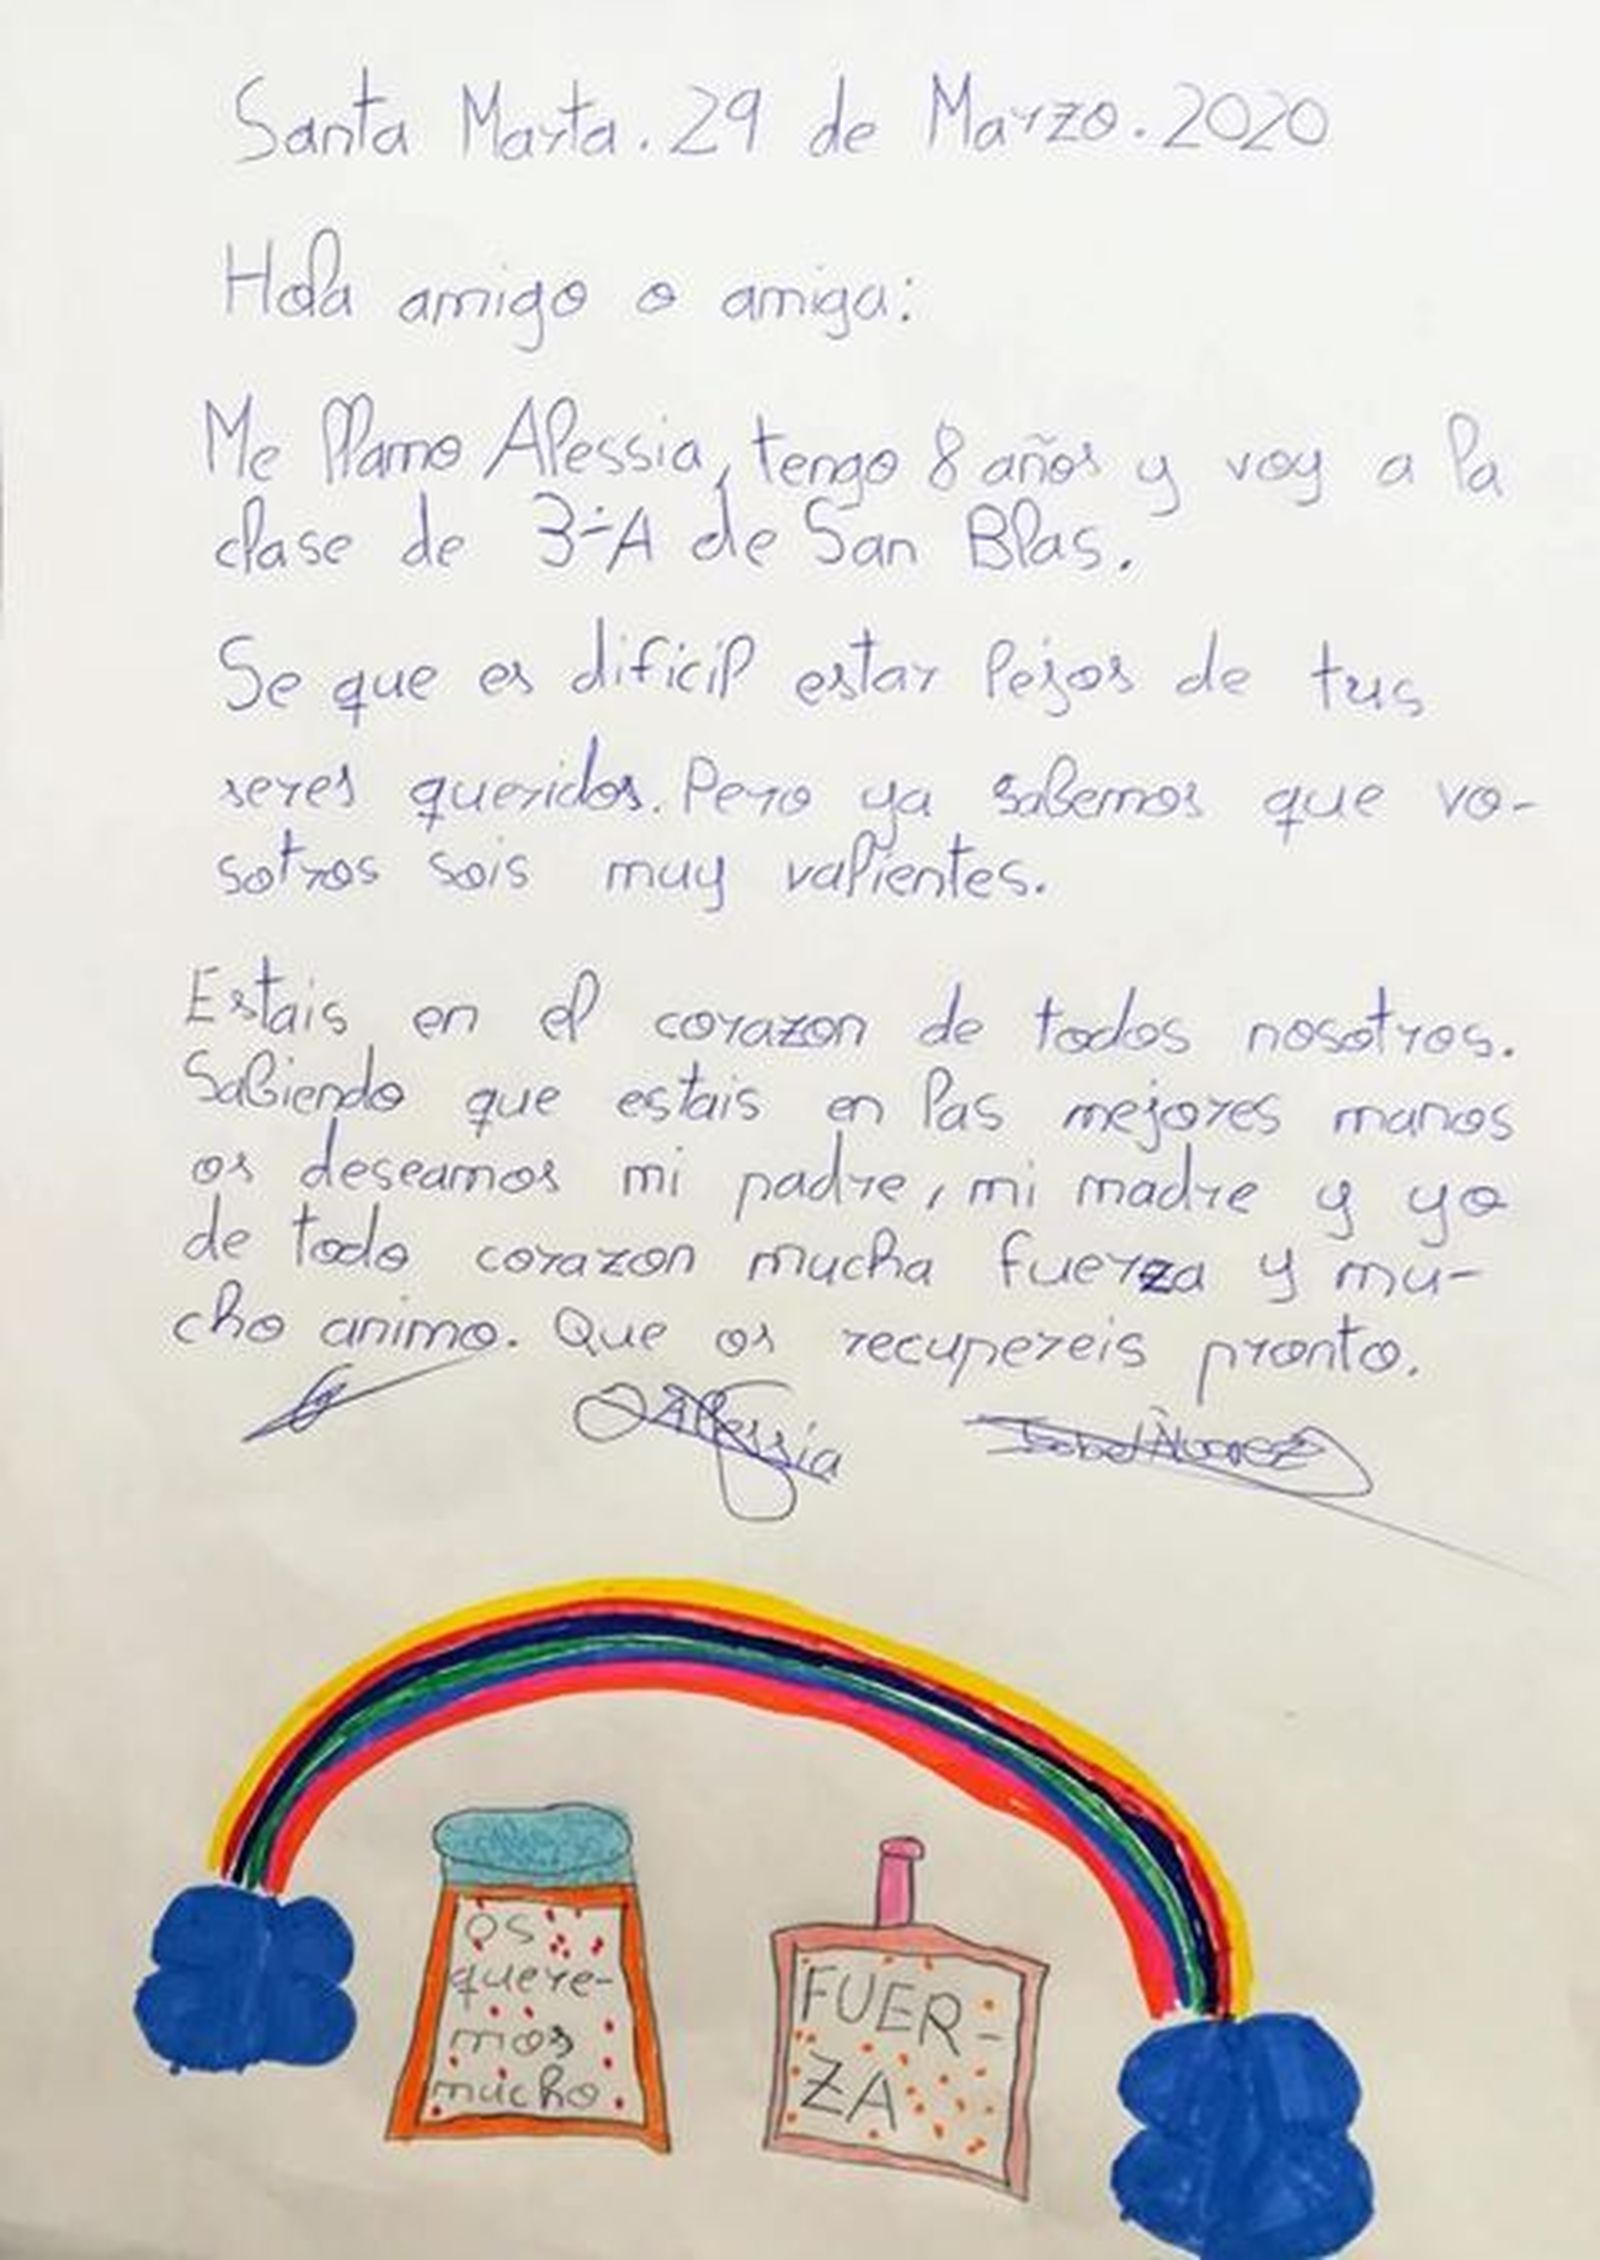 Santa Marta. 29 de Marzo. 2020
Hola amigo o amiga:
Me llamo Alessia, tengo 8 años y voy a la
clase de 3ºA de San Blas.
Se que es dificil estar lejos de tus
seres queridos. Pero ya sabemos que vo-
sotros sois muy valientes.
Estais en el corazon de todos nosotros.
Sabiendo que estais en las mejores manos
os deseamos mi padre, mi madre y yo
de todo corazon mucha fuerza y mu-
cho animo. Que os recupereis pronto.
Alessia Isabel Álvarez
os
quere-
mos
mucho
FUER-
ZA